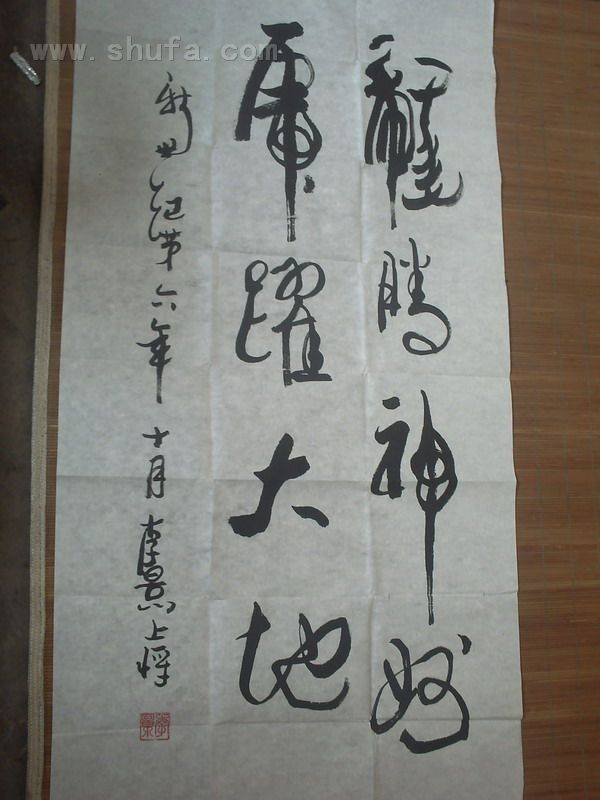 www.shufa.com
龍腾神州
虎躍大地
新世纪第六年十月李景上将
李景